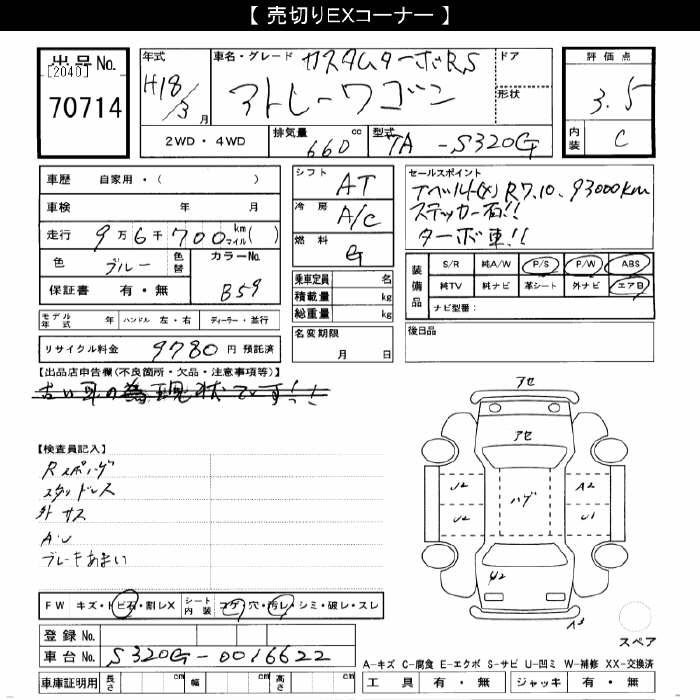 【 売切りEXコーナー 】
出品No.
[2040]
70714
年式
H18/3月
車名・グレード カスタムターボRS
アトレーワゴン
ドア
形状
評価点
3.5
内装 C
2WD・4WD
排気量 660 cc
型式 TA-S320G
車歴 自家用・( )
車検 年 月
走行 9万6千700 km(マイル)( )
色 ブルー 色替
カラーNo. B59
保証書 有・無
モデル年式 年 ハンドル 左・右 ディーラー・並行
リサイクル料金 9780 円 預託済
シフト AT
冷房 A/C
燃料 G
乗車定員 名
積載量 kg
総重量 kg
名変期限
月 日
セールスポイント
Tベルト(X) R7.10、93000km
ステッカー有!!
ターボ車!!
装備品 S/R 純A/W P/S P/W ABS
純TV 純ナビ 革シート 外ナビ エアB
ナビ型番:
後日品
【出品店申告欄(不良箇所・欠品・注意事項等)】
古い車の為現状です!!
【検査員記入】
Rスポハゲ
スタッドレス
外 サス
A.U
ブレーキあまい
アセ
アセ
ハゲ
U2
U2
A2
U1
U2
A3
スペア
FW キズ・トビ石・割レX シート内装 コゲ・穴・汚レ・シミ・破レ・スレ
登録No.
車台No. S320G-0016622
車庫証明用 長さ cm 幅 cm 高さ cm
A-キズ C-腐食 E-エクボ S-サビ U-凹ミ W-補修 XX-交換済
工具 有・無 ジャッキ 有・無